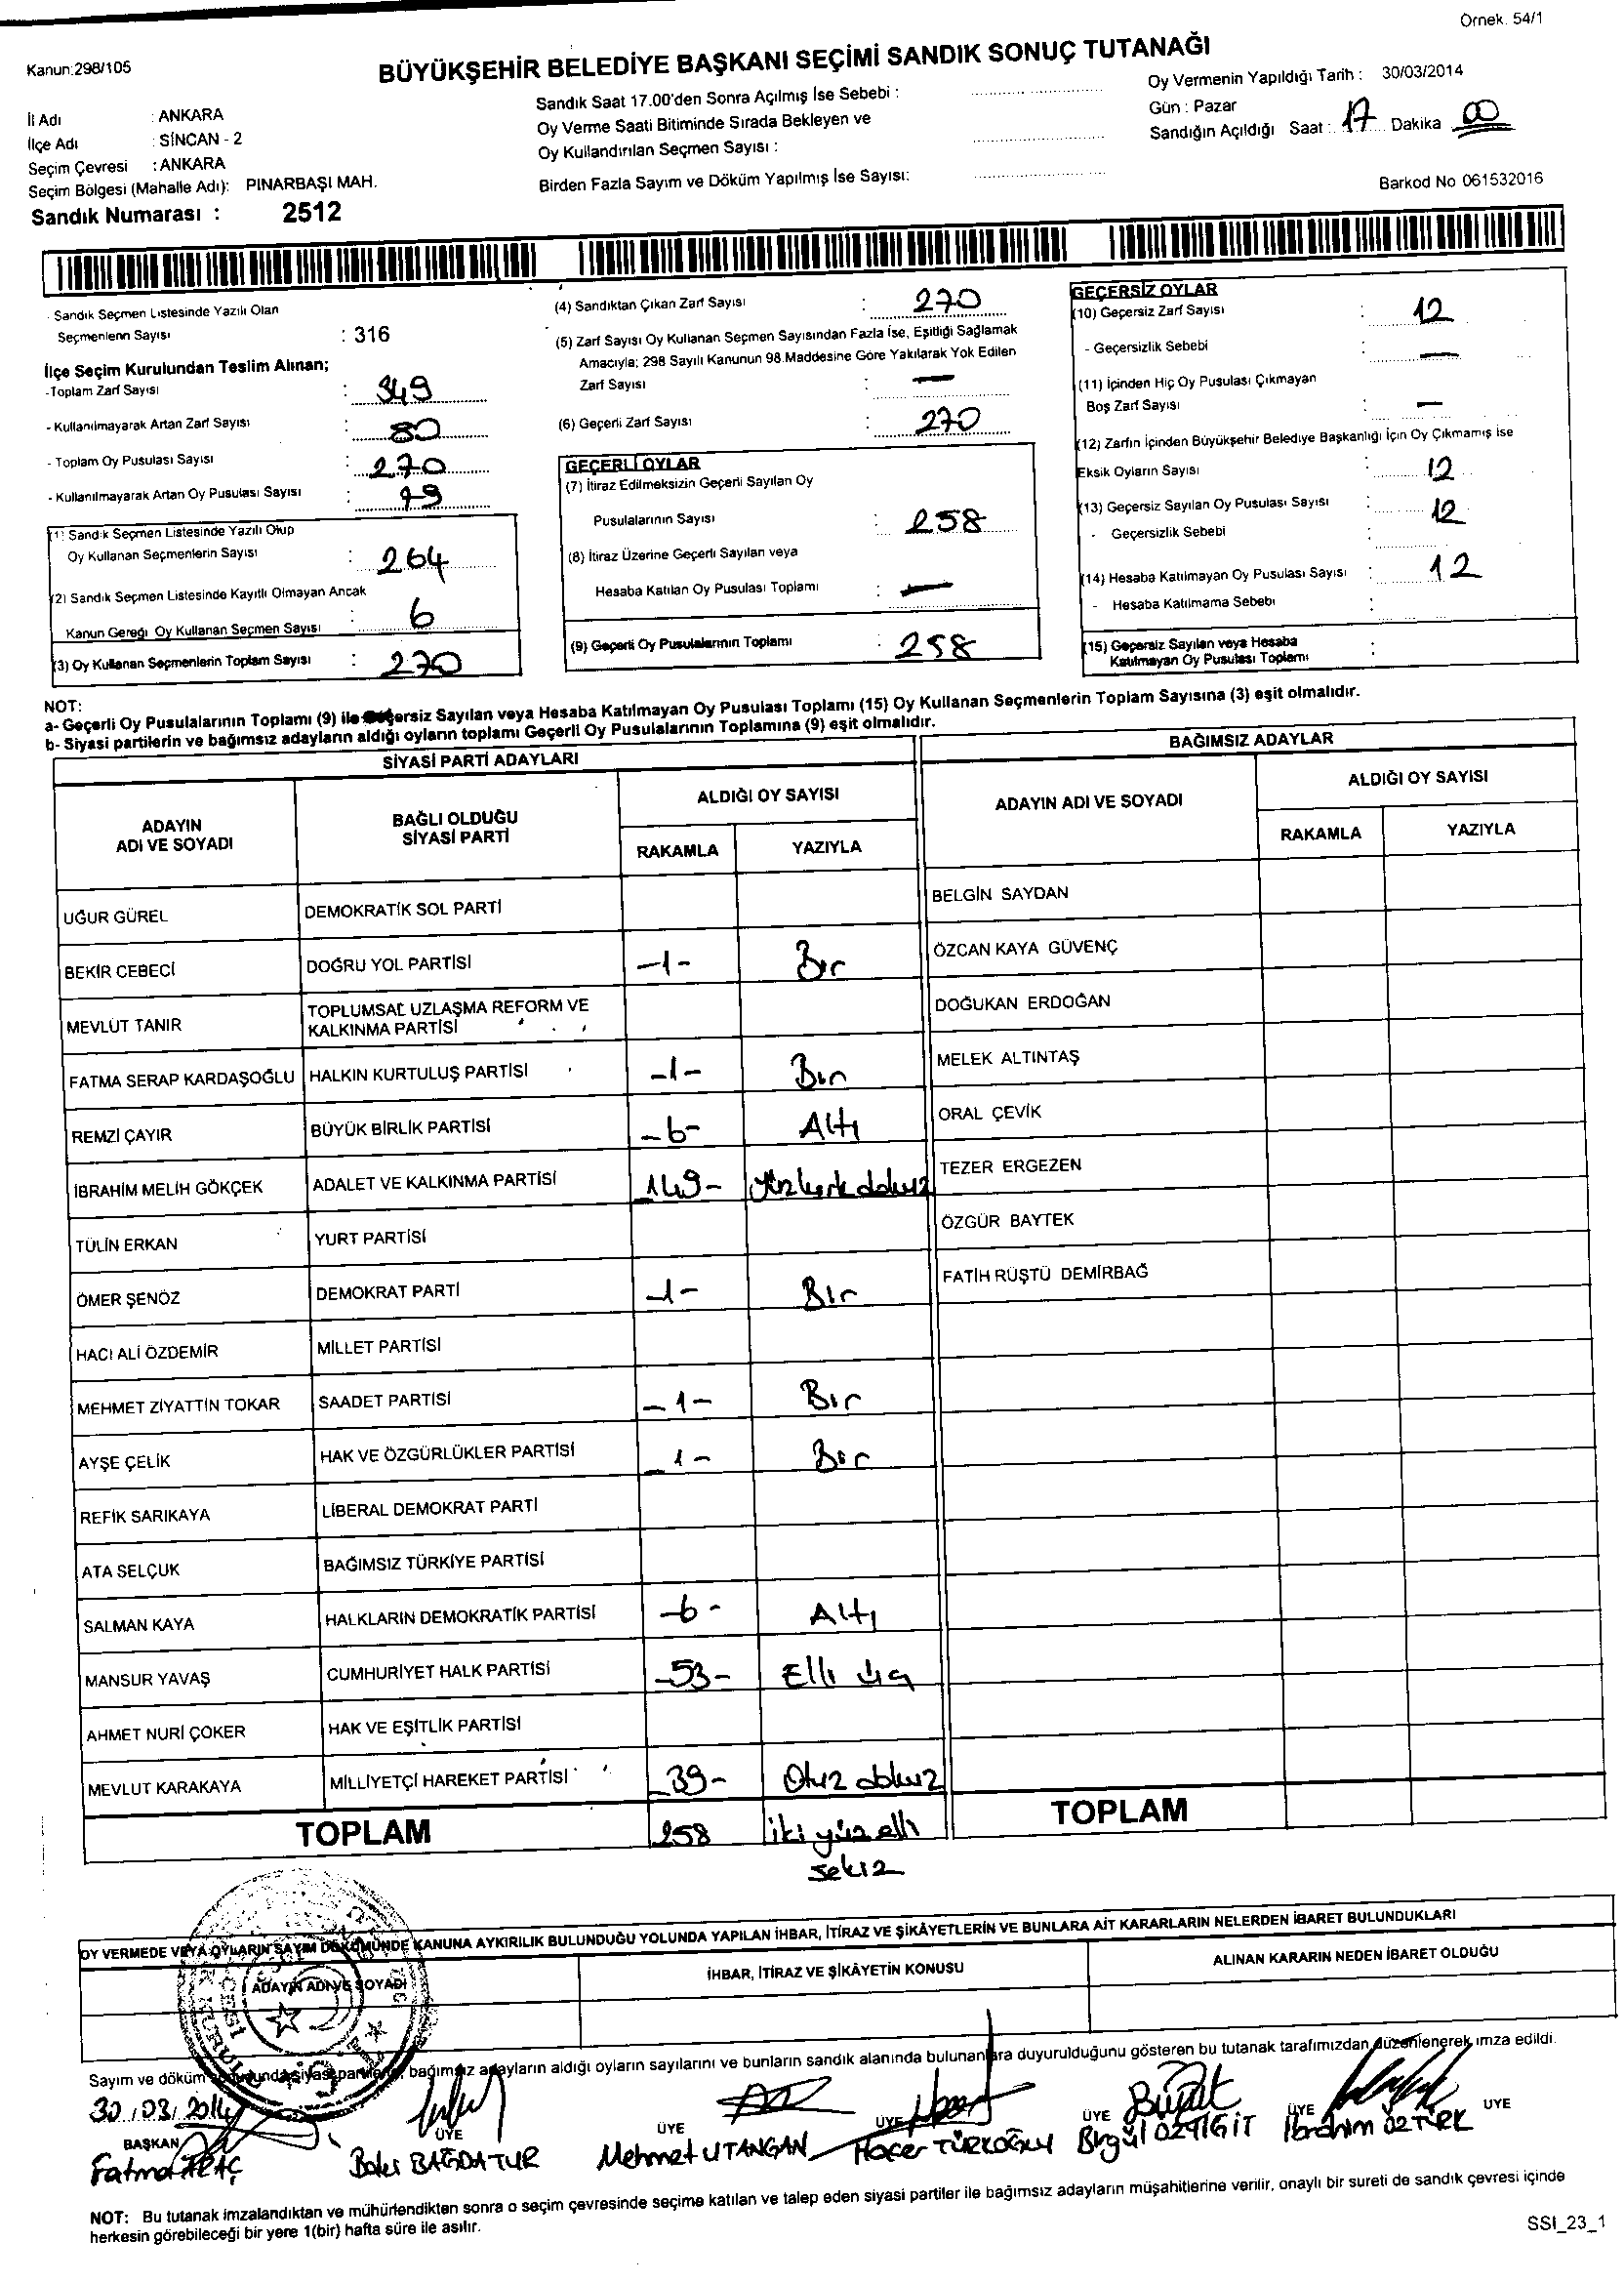 Örnek. 54/1
Kanun:298/105
BÜYÜKŞEHİR BELEDİYE BAŞKANI SEÇİMİ SANDIK SONUÇ TUTANAĞI
İl Adı : ANKARA
İlçe Adı : SİNCAN - 2
Seçim Çevresi : ANKARA
Seçim Bölgesi (Mahalle Adı): PINARBAŞI MAH.
Sandık Numarası : 2512
Sandık Saat 17.00'den Sonra Açılmış İse Sebebi :
Oy Verme Saati Bitiminde Sırada Bekleyen ve
Oy Kullandırılan Seçmen Sayısı :
Birden Fazla Sayım ve Döküm Yapılmış İse Sayısı:
Oy Vermenin Yapıldığı Tarih : 30/03/2014
Gün : Pazar
Sandığın Açıldığı Saat : 17 Dakika 00
Barkod No 061532016
Sandık Seçmen Listesinde Yazılı Olan
Seçmenlerin Sayısı : 316
İlçe Seçim Kurulundan Teslim Alınan;
-Toplam Zarf Sayısı : 349
- Kullanılmayarak Artan Zarf Sayısı : 80
- Toplam Oy Pusulası Sayısı : 270
- Kullanılmayarak Artan Oy Pusulası Sayısı : 79
(1) Sandık Seçmen Listesinde Yazılı Olup
Oy Kullanan Seçmenlerin Sayısı : 264
(2) Sandık Seçmen Listesinde Kayıtlı Olmayan Ancak
Kanun Gereği Oy Kullanan Seçmen Sayısı : 6
(3) Oy Kullanan Seçmenlerin Toplam Sayısı : 270
(4) Sandıktan Çıkan Zarf Sayısı : 270
(5) Zarf Sayısı Oy Kullanan Seçmen Sayısından Fazla İse, Eşitliği Sağlamak
Amacıyla; 298 Sayılı Kanunun 98.Maddesine Göre Yakılarak Yok Edilen
Zarf Sayısı : —
(6) Geçerli Zarf Sayısı : 270
GEÇERLİ OYLAR
(7) İtiraz Edilmeksizin Geçerli Sayılan Oy
Pusulalarının Sayısı : 258
(8) İtiraz Üzerine Geçerli Sayılan veya
Hesaba Katılan Oy Pusulası Toplamı : —
(9) Geçerli Oy Pusulalarının Toplamı : 258
GEÇERSİZ OYLAR
(10) Geçersiz Zarf Sayısı : 12
- Geçersizlik Sebebi : —
(11) İçinden Hiç Oy Pusulası Çıkmayan
Boş Zarf Sayısı : —
(12) Zarfın İçinden Büyükşehir Belediye Başkanlığı İçin Oy Çıkmamış ise
Eksik Oyların Sayısı : 12
(13) Geçersiz Sayılan Oy Pusulası Sayısı : 12
- Geçersizlik Sebebi :
(14) Hesaba Katılmayan Oy Pusulası Sayısı : 12
- Hesaba Katılmama Sebebi :
(15) Geçersiz Sayılan veya Hesaba
Katılmayan Oy Pusulası Toplamı :
NOT:
a- Geçerli Oy Pusulalarının Toplamı (9) ile Geçersiz Sayılan veya Hesaba Katılmayan Oy Pusulası Toplamı (15) Oy Kullanan Seçmenlerin Toplam Sayısına (3) eşit olmalıdır.
b- Siyasi partilerin ve bağımsız adayların aldığı oyların toplamı Geçerli Oy Pusulalarının Toplamına (9) eşit olmalıdır.
SİYASİ PARTİ ADAYLARI BAĞIMSIZ ADAYLAR
ADAYIN ADI VE SOYADI BAĞLI OLDUĞU SİYASİ PARTİ ALDIĞI OY SAYISI ADAYIN ADI VE SOYADI ALDIĞI OY SAYISI
RAKAMLA YAZIYLA RAKAMLA YAZIYLA
UĞUR GÜREL DEMOKRATİK SOL PARTİ BELGİN SAYDAN
BEKİR CEBECİ DOĞRU YOL PARTİSİ -1- Bir ÖZCAN KAYA GÜVENÇ
MEVLÜT TANIR TOPLUMSAL UZLAŞMA REFORM VE KALKINMA PARTİSİ DOĞUKAN ERDOĞAN
FATMA SERAP KARDAŞOĞLU HALKIN KURTULUŞ PARTİSİ -1- Bir MELEK ALTINTAŞ
REMZİ ÇAYIR BÜYÜK BİRLİK PARTİSİ -6- Altı ORAL ÇEVİK
İBRAHİM MELİH GÖKÇEK ADALET VE KALKINMA PARTİSİ -149- Yüzkırk dokuz TEZER ERGEZEN
TÜLİN ERKAN YURT PARTİSİ ÖZGÜR BAYTEK
ÖMER ŞENÖZ DEMOKRAT PARTİ -1- Bir FATİH RÜŞTÜ DEMİRBAĞ
HACI ALİ ÖZDEMİR MİLLET PARTİSİ
MEHMET ZİYATTİN TOKAR SAADET PARTİSİ -1- Bir
AYŞE ÇELİK HAK VE ÖZGÜRLÜKLER PARTİSİ -1- Bir
REFİK SARIKAYA LİBERAL DEMOKRAT PARTİ
ATA SELÇUK BAĞIMSIZ TÜRKİYE PARTİSİ
SALMAN KAYA HALKLARIN DEMOKRATİK PARTİSİ -6- Altı
MANSUR YAVAŞ CUMHURİYET HALK PARTİSİ -53- Elli üç
AHMET NURİ ÇÖKER HAK VE EŞİTLİK PARTİSİ
MEVLUT KARAKAYA MİLLİYETÇİ HAREKET PARTİSİ -39- Otuz dokuz
TOPLAM 258 iki yüz elli sekiz TOPLAM
OY VERMEDE VEYA OYLARIN SAYIM DÖKÜMÜNDE KANUNA AYKIRILIK BULUNDUĞU YOLUNDA YAPILAN İHBAR, İTİRAZ VE ŞİKÂYETLERİN VE BUNLARA AİT KARARLARIN NELERDEN İBARET BULUNDUKLARI
ADAYIN ADI VE SOYADI İHBAR, İTİRAZ VE ŞİKÂYETİN KONUSU ALINAN KARARIN NEDEN İBARET OLDUĞU
Sayım ve döküm sonucunda siyasi partilerin, bağımsız adayların aldığı oyların sayılarını ve bunların sandık alanında bulunanlara duyurulduğunu gösteren bu tutanak tarafımızdan düzenlenerek imza edildi.
30/03/2014
BAŞKAN ÜYE ÜYE ÜYE ÜYE ÜYE ÜYE
Fatma Bekir BAĞDATUR Mehmet UTANGAN Hacer TÜRKOĞLU Birgül ÖZYİĞİT İbrahim ÖZTÜRK
NOT: Bu tutanak imzalandıktan ve mühürlendikten sonra o seçim çevresinde seçime katılan ve talep eden siyasi partiler ile bağımsız adayların müşahitlerine verilir, onaylı bir sureti de sandık çevresi içinde
herkesin görebileceği bir yere 1(bir) hafta süre ile asılır.
SSI_23_1